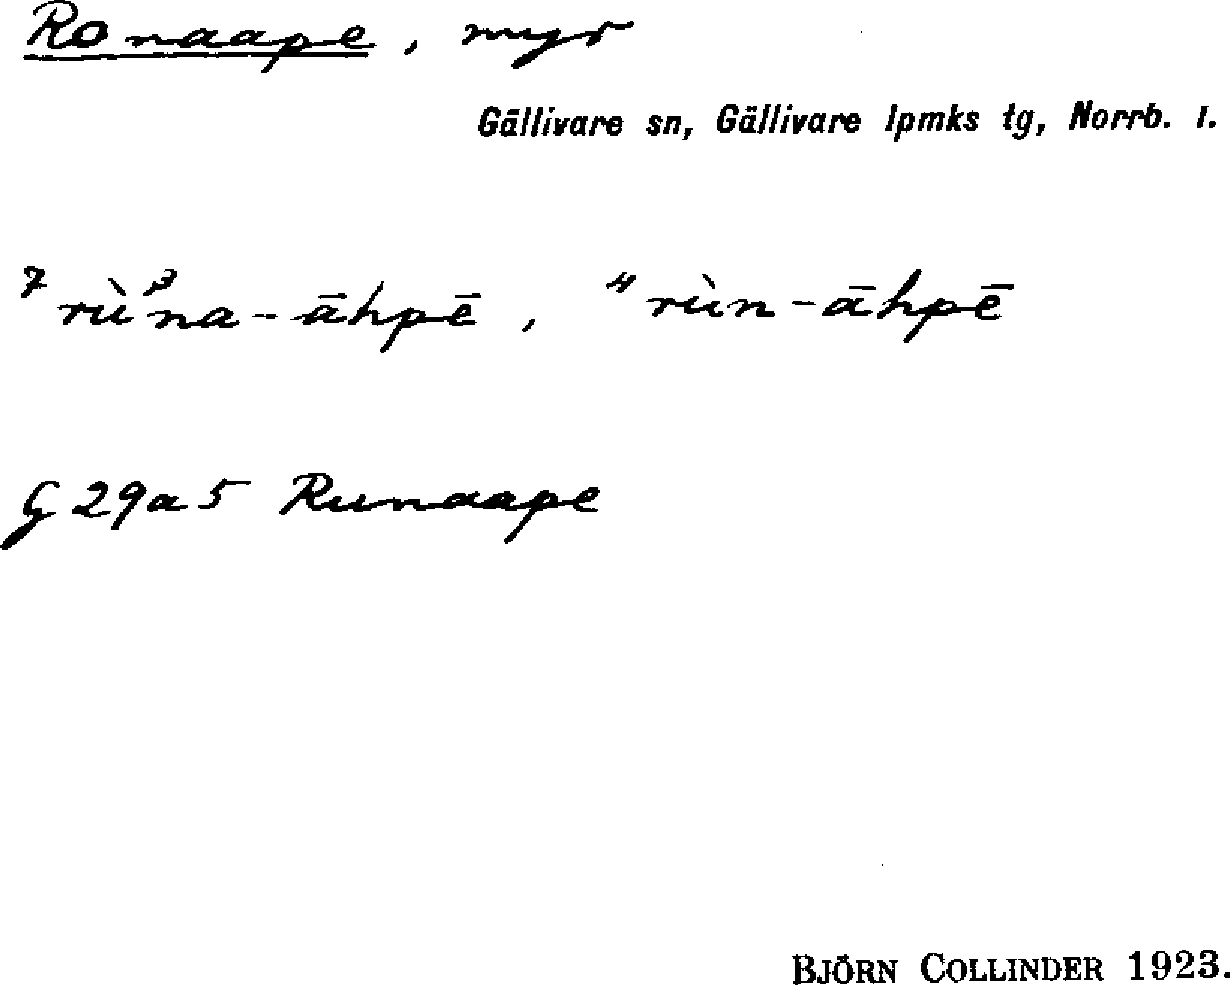 Ronaape, myr
Gällivare sn, Gällivare lpmks tg, Norrb. l.
⁷ rùᵝna-āhpē, ⁴ rùn-āhpē
G 29a5 Runaape
BJÖRN COLLINDER 1923.